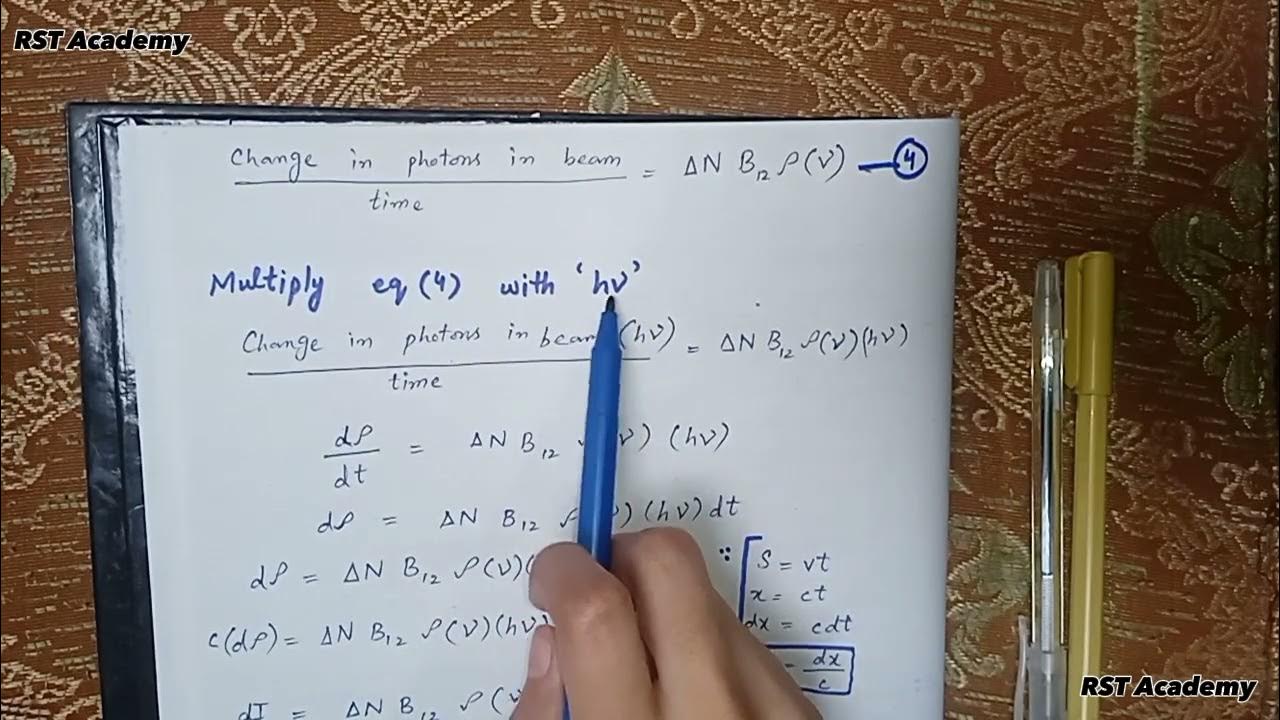 RST Academy
Change in photons in beam / time = ΔN B₁₂ ρ(ν) — ④
Multiply eq (4) with 'hν'
Change in photons in beam (hν) / time = ΔN B₁₂ ρ(ν)(hν)
dρ/dt = ΔN B₁₂ ν) (hν)
dρ = ΔN B₁₂ ρ ) (hν) dt
dρ = ΔN B₁₂ ρ(ν)(
c(dρ) = ΔN B₁₂ ρ(ν)(hν)
dI = ΔN B₁₂ ρ(ν
∵ S = vt
x = ct
dx = cdt
= dx/c
RST Academy